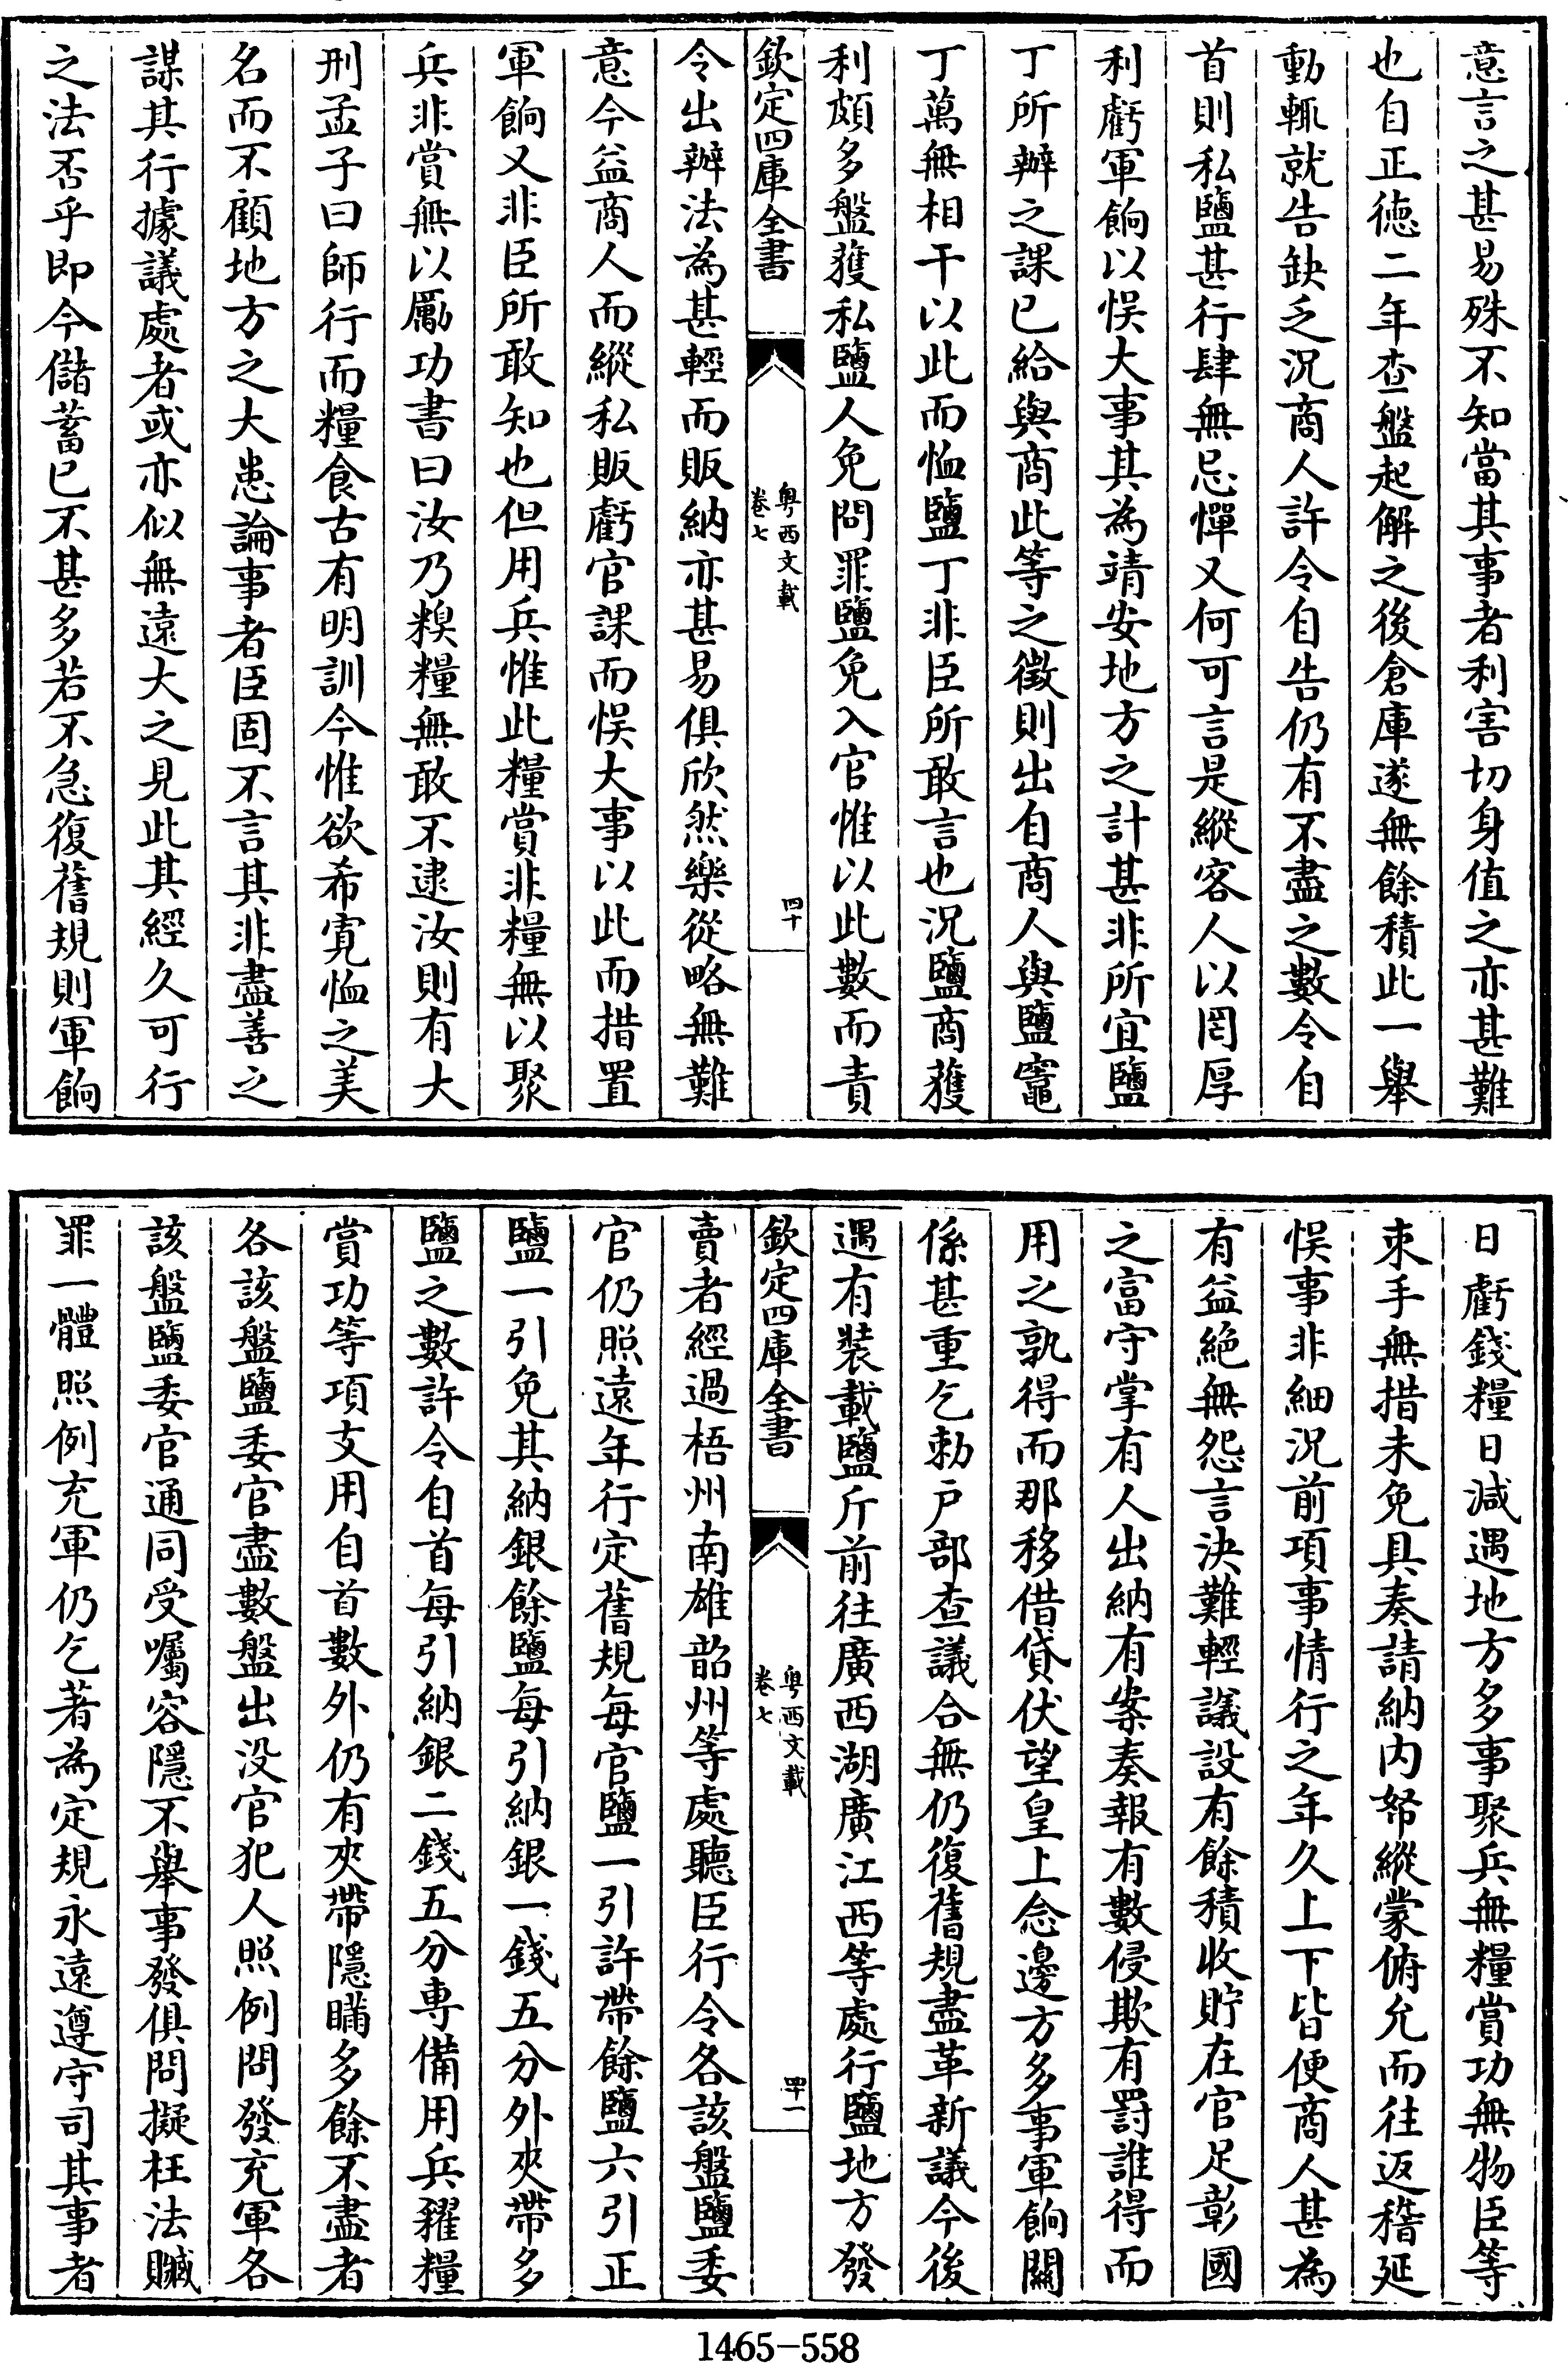 意言之甚易殊不知當其事者利害切身值之亦甚難
也自正德二年查盤起解之後倉庫遂無餘積此一舉
動輒就告缺乏況商人許令自告仍有不盡之數令自
首則私鹽甚行肆無忌憚又何可言是縱客人以罔厚
利虧軍餉以悞大事其為靖安地方之計甚非所宜鹽
丁所辦之課已給與商此等之徵則出自商人與鹽竈
丁萬無相干以此而恤鹽丁非臣所敢言也況鹽商獲
利頗多盤獲私鹽人免問罪鹽免入官惟以此數而責
欽定四庫全書
粤西文載
卷七
四十
令出辦法為甚輕而販納亦甚易俱欣然樂從略無難
意今益商人而縱私販虧官課而悞大事以此而措置
軍餉又非臣所敢知也但用兵惟此糧賞非糧無以聚
兵非賞無以勵功書曰汝乃糗糧無敢不逮汝則有大
刑孟子曰師行而糧食古有明訓今惟欲希寛恤之美
名而不顧地方之大患論事者臣固不言其非盡善之
謀其行據議處者或亦似無遠大之見此其經久可行
之法否乎即今儲蓄已不甚多若不急復舊規則軍餉
日虧錢糧日減遇地方多事聚兵無糧賞功無物臣等
束手無措未免具奏請納内帑縱蒙俯允而往返稽延
悞事非細況前項事情行之年久上下皆便商人甚為
有益絶無怨言決難輕議設有餘積收貯在官足彰國
之富守掌有人出納有案奏報有數侵欺有罰誰得而
用之孰得而那移借貸伏望皇上念邊方多事軍餉關
係甚重乞勅户部查議合無仍復舊規盡革新議今後
遇有裝載鹽斤前往廣西湖廣江西等處行鹽地方發
欽定四庫全書
粤西文載
卷七
四十一
賣者經過梧州南雄韶州等處聽臣行令各該盤鹽委
官仍照遠年行定舊規每官鹽一引許帶餘鹽六引正
鹽一引免其納銀餘鹽每引納銀一錢五分外夾帶多
鹽之數許令自首每引納銀二錢五分專備用兵糴糧
賞功等項支用自首數外仍有夾帶隱瞞多餘不盡者
各該盤鹽委官盡數盤出没官犯人照例問發充軍各
該盤鹽委官通同受囑容隱不舉事發俱問擬枉法贓
罪一體照例充軍仍乞著為定規永遠遵守司其事者
1465-558